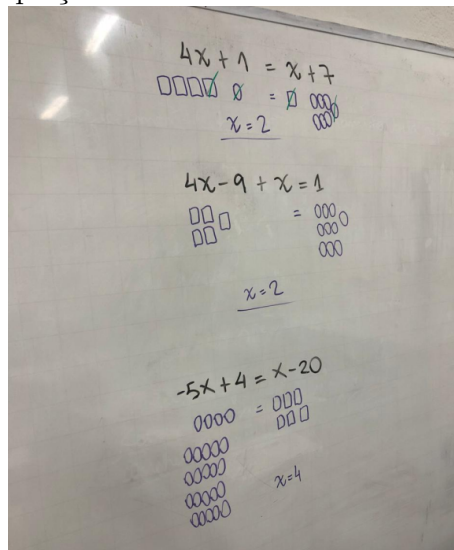 4x + 1 = x + 7
=
x = 2
4x - 9 + x = 1
=
x = 2
-5x + 4 = x - 20
=
x = 4